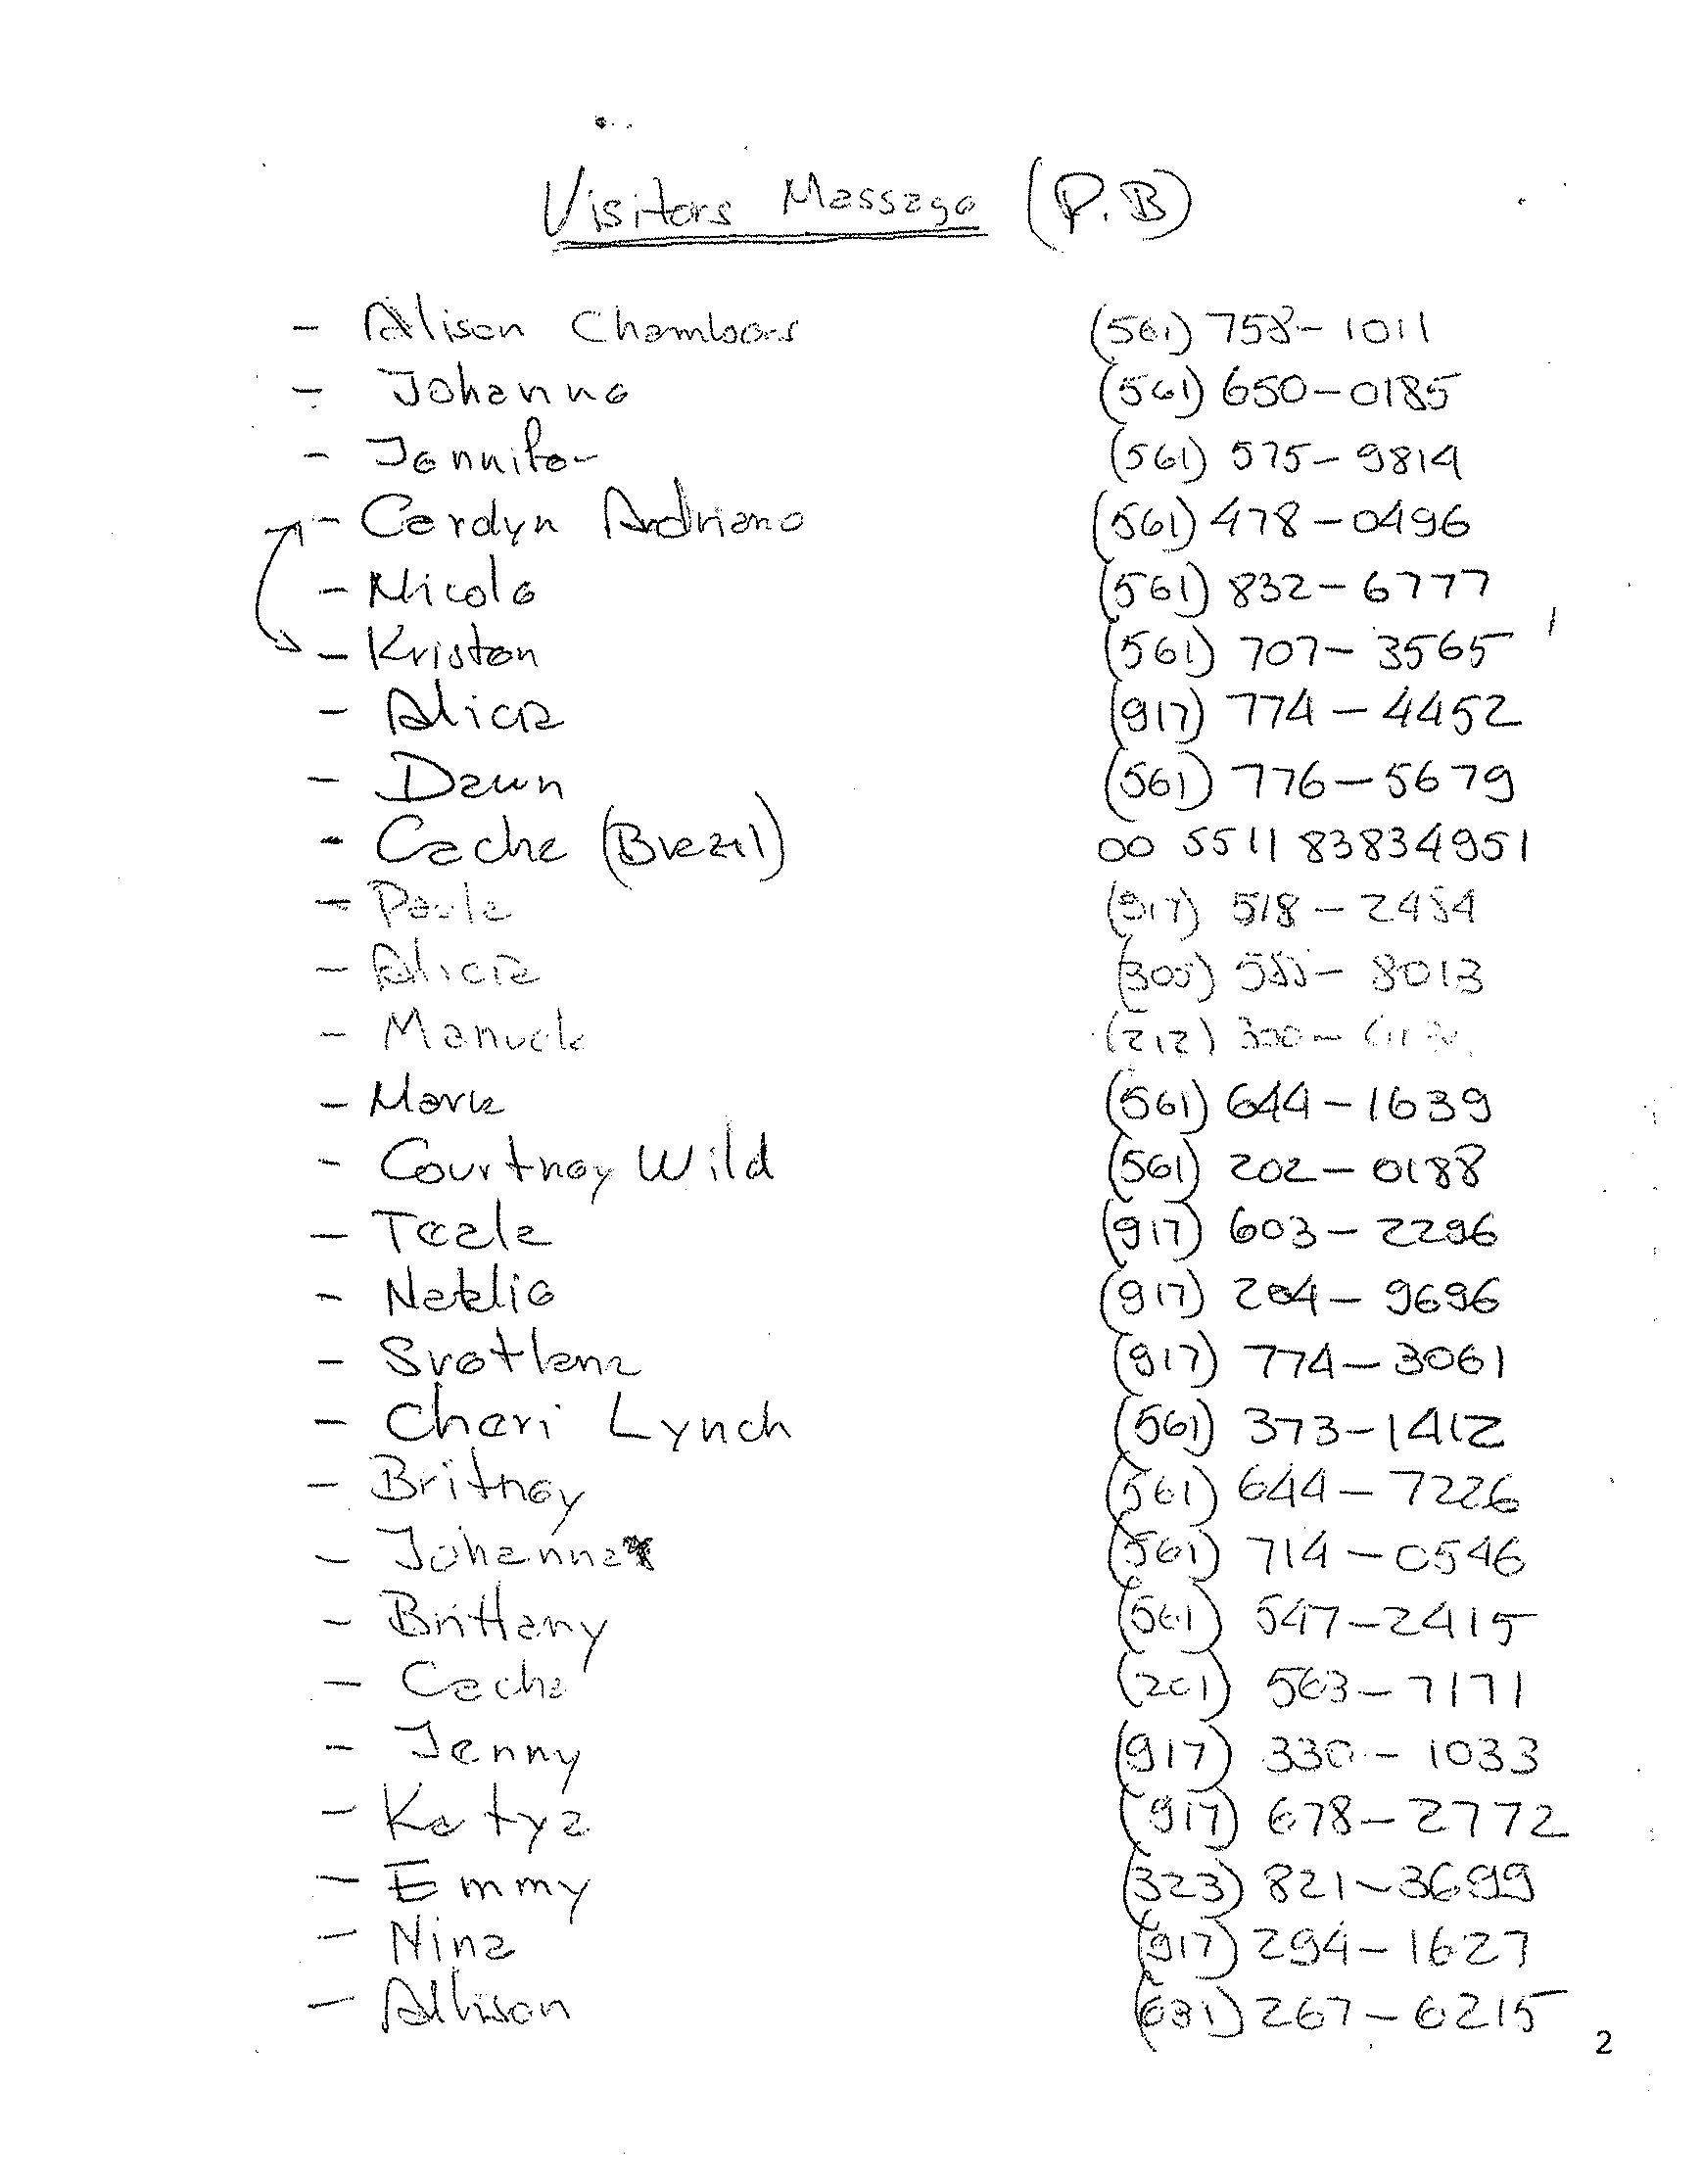 Visitors Massage (P.B)
- Alison Chambers (561) 758-1011
- Johanna (561) 650-0185
- Jennifer (561) 575-9814
- Carolyn Andriano (561) 478-0496
- Nicole (561) 832-6777
- Kristen (561) 707-3565
- Alicia (917) 774-4452
- Dawn (561) 776-5679
- Cacha (Brazil) 00 5511 83834951
- Paula (917) 518-2484
- Alicia (305) 8013
- Manuela (212) 300-
- Mark (561) 644-1639
- Courtney Wild (561) 202-0188
- Teala (917) 603-2296
- Natalie (917) 204-9696
- Svetlana (917) 774-3061
- Cheri Lynch (561) 373-1412
- Britney (561) 644-7226
- Johanna* (561) 714-0546
- Brittany (561) 547-2415
- Cacha (201) 563-7171
- Jenny (917) 330-1033
- Katya (917) 678-2772
- Emmy (323) 821-3699
- Nina (917) 294-1627
- Allison (631) 267-6215
2